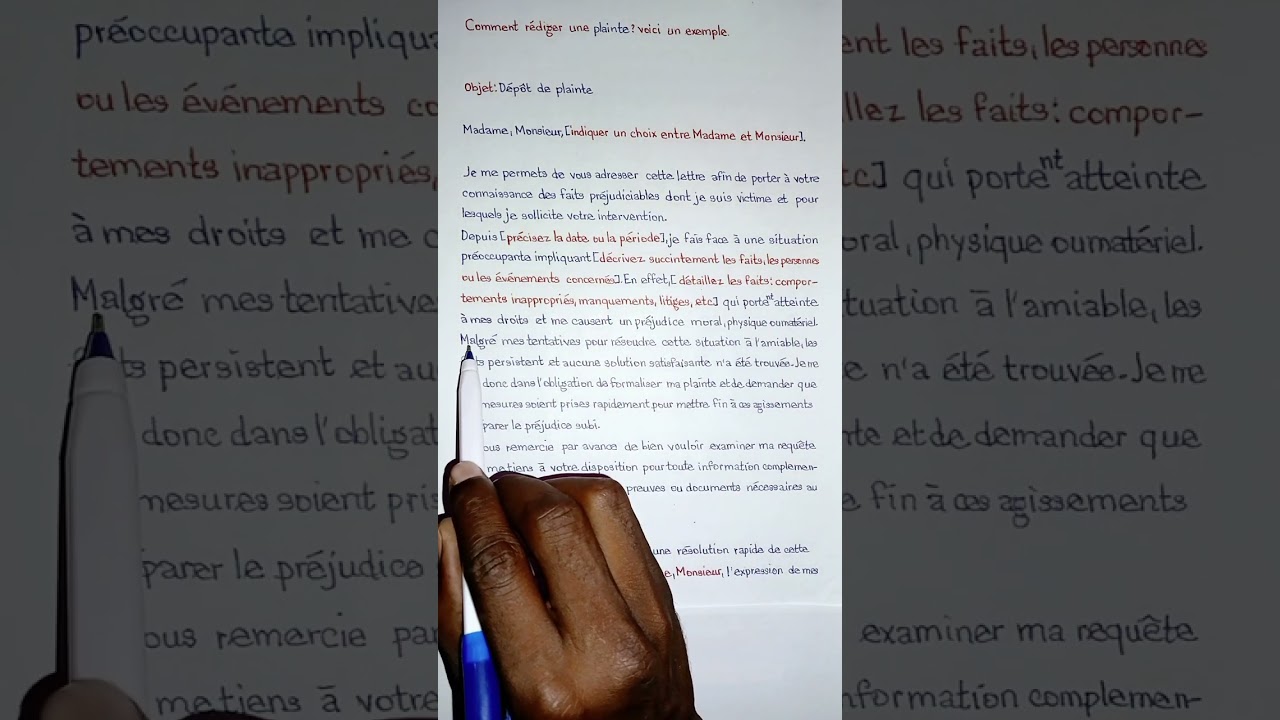 Comment rédiger une plainte? voici un exemple.
Objet: Dépôt de plainte
Madame, Monsieur, [indiquer un choix entre Madame et Monsieur].
Je me permets de vous adresser cette lettre afin de porter à votre
connaissance des faits préjudiciables dont je suis victime et pour
lesquels je sollicite votre intervention.
Depuis [précisez la date ou la période], je fais face à une situation
préoccupante impliquant [décrivez succintement les faits, les personnes
ou les événements concernés]. En effet, [détaillez les faits: compor-
tements inappropriés, manquements, litiges, etc] qui portent atteinte
à mes droits et me causent un préjudice moral, physique ou matériel.
Malgré mes tentatives pour résoudre cette situation à l'amiable, les
persistent et aucune solution satisfaisante n'a été trouvée. Je me
donc dans l'obligation de formaliser ma plainte et de demander que
mesures soient prises rapidement pour mettre fin à ces agissements
le préjudice subi.
remercie par avance de bien vouloir examiner ma requête
me tiens à votre disposition pour toute information complemen-
preuves ou documents nécessaires au
une résolution rapide de cette
Monsieur, l'expression de mes